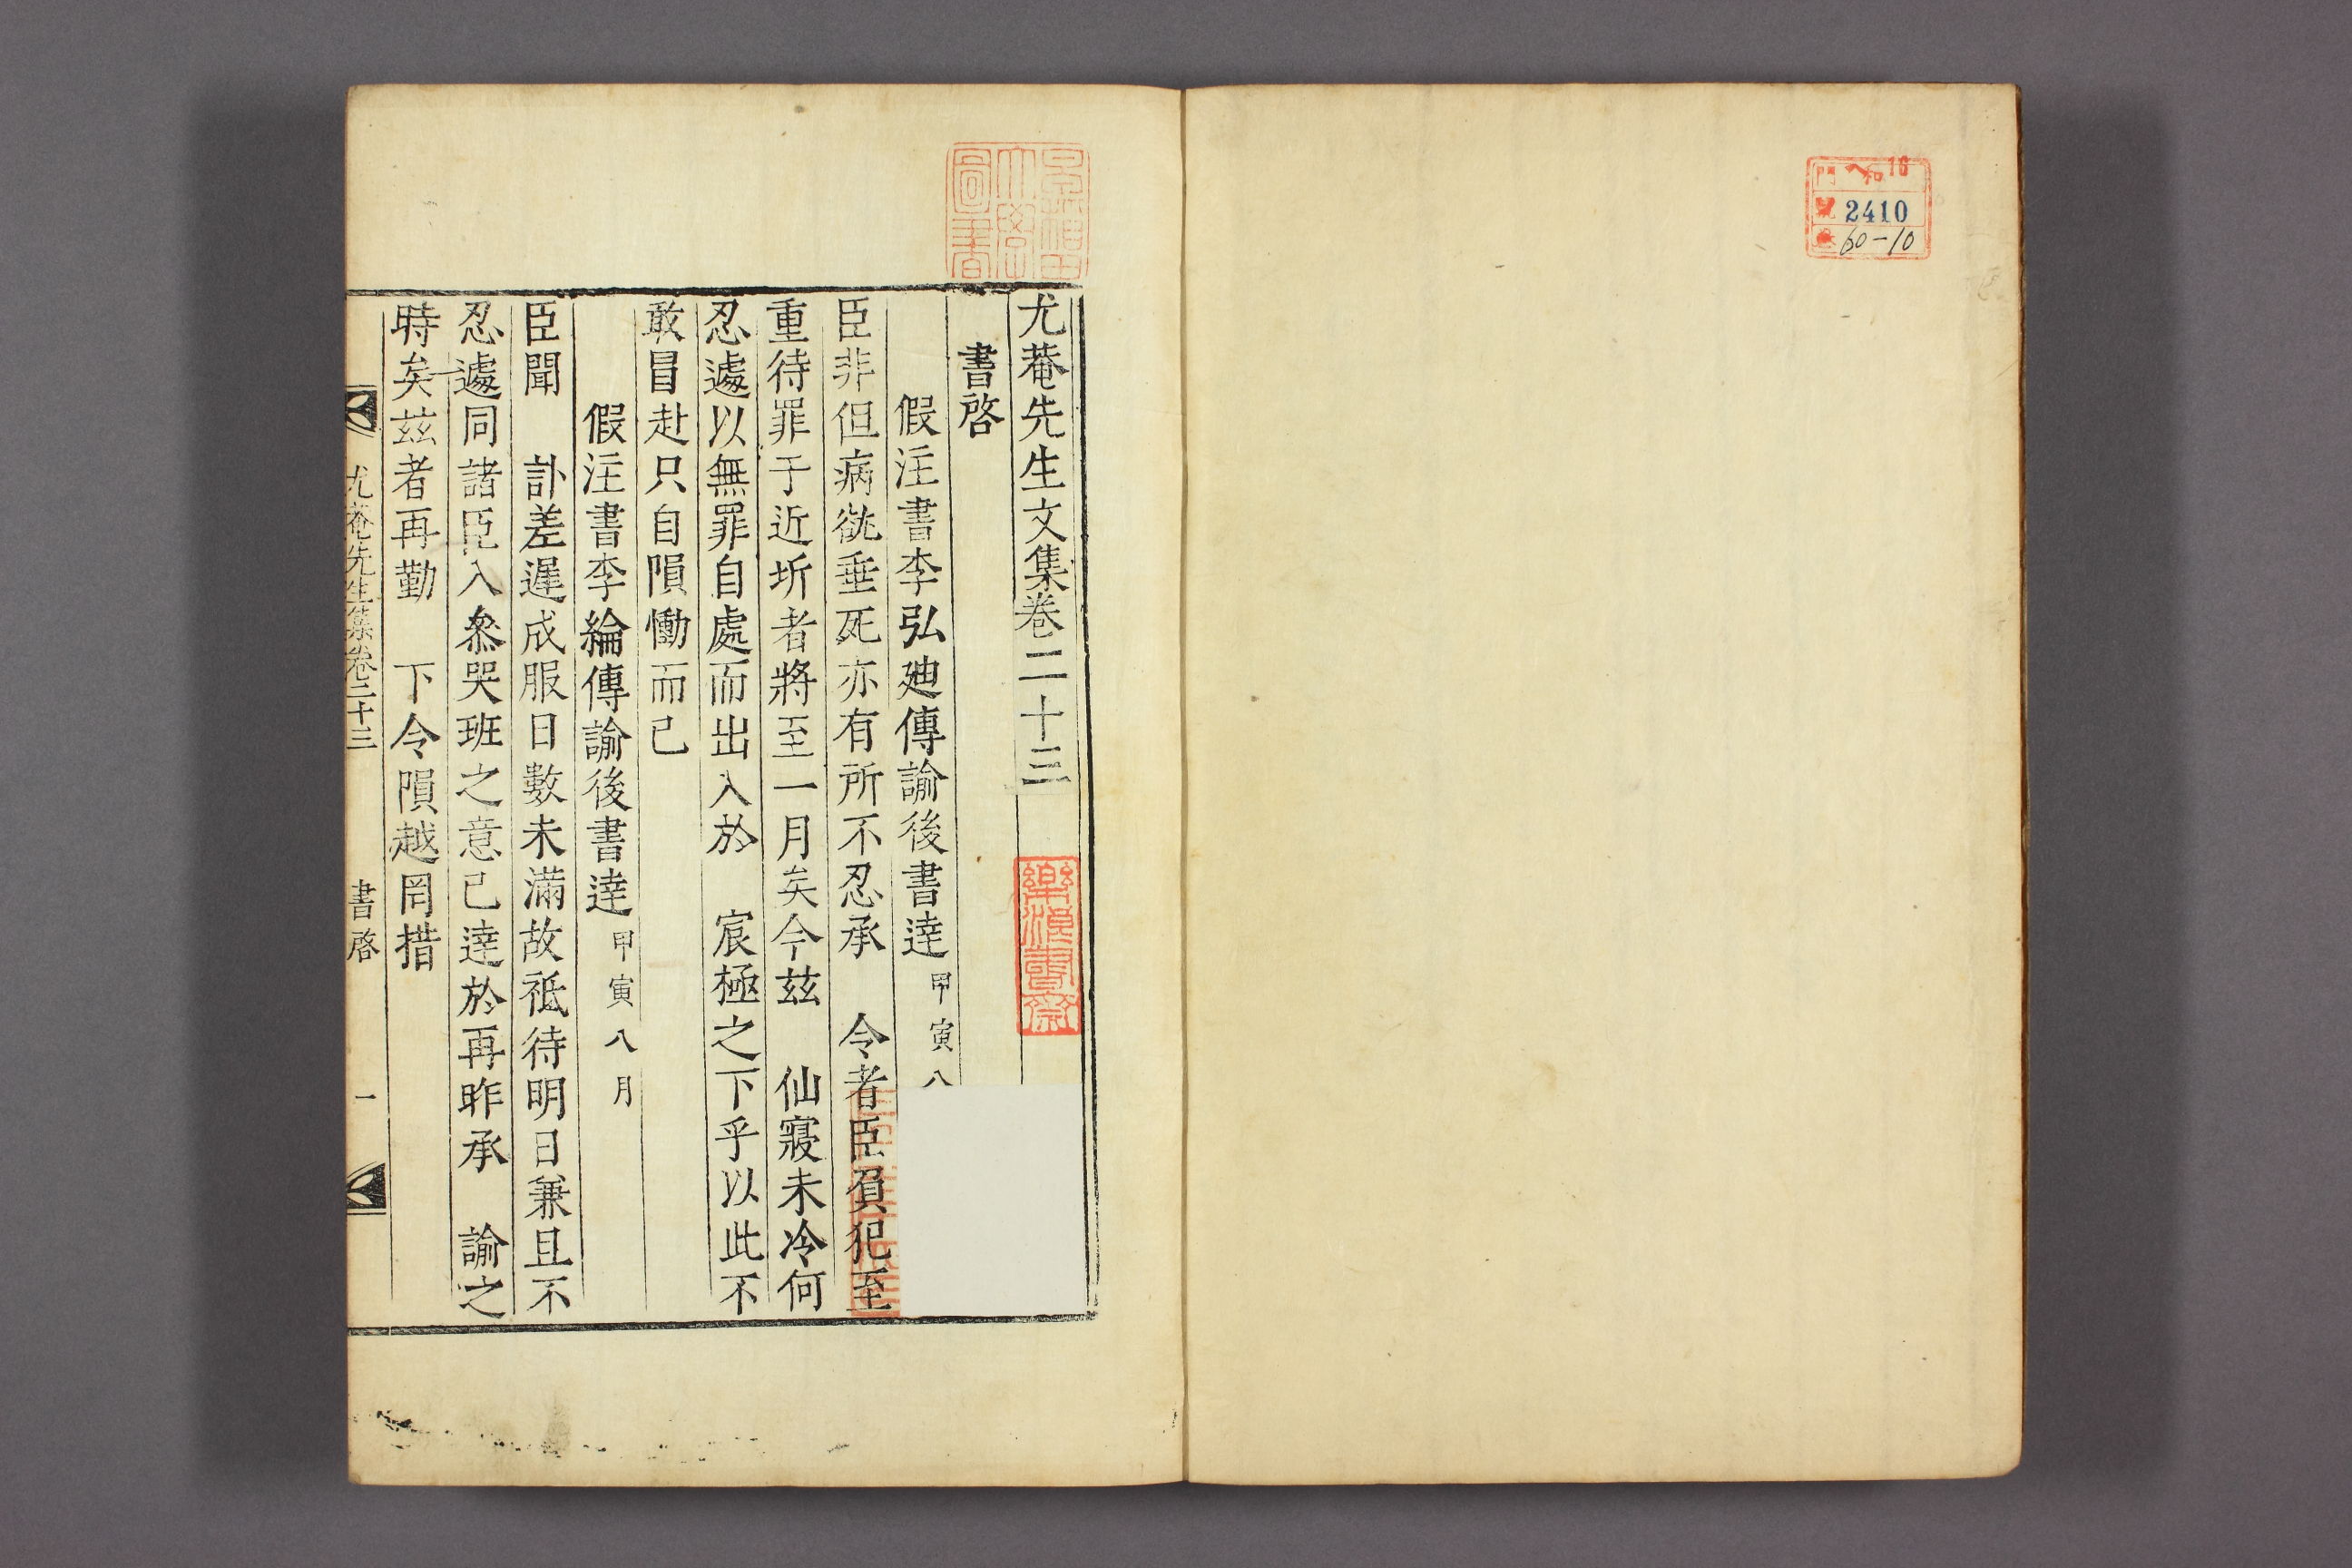 和 16
門
號 2410
60-10
早稲田大學圖書
尤菴先生文集卷二十三
樂浪書齋
書啓
假注書李弘迪傳諭後書達 甲寅八
臣非但病㞃垂死亦有所不忍承 令者臣負犯至
重待罪于近圻者將至一月矣今玆 仙寢未冷何
忍遽以無罪自處而出入於 宸極之下乎以此不
敢冒赴只自隕慟而已
假注書李綸傳諭後書達 甲寅八月
臣聞 訃差遲成服日數未滿故祗待明日兼且不
忍遽同諸臣入叅哭班之意已達於再昨承 諭之
時矣玆者再勤 下令隕越罔措
尤菴先生集卷二十三 書啓 一